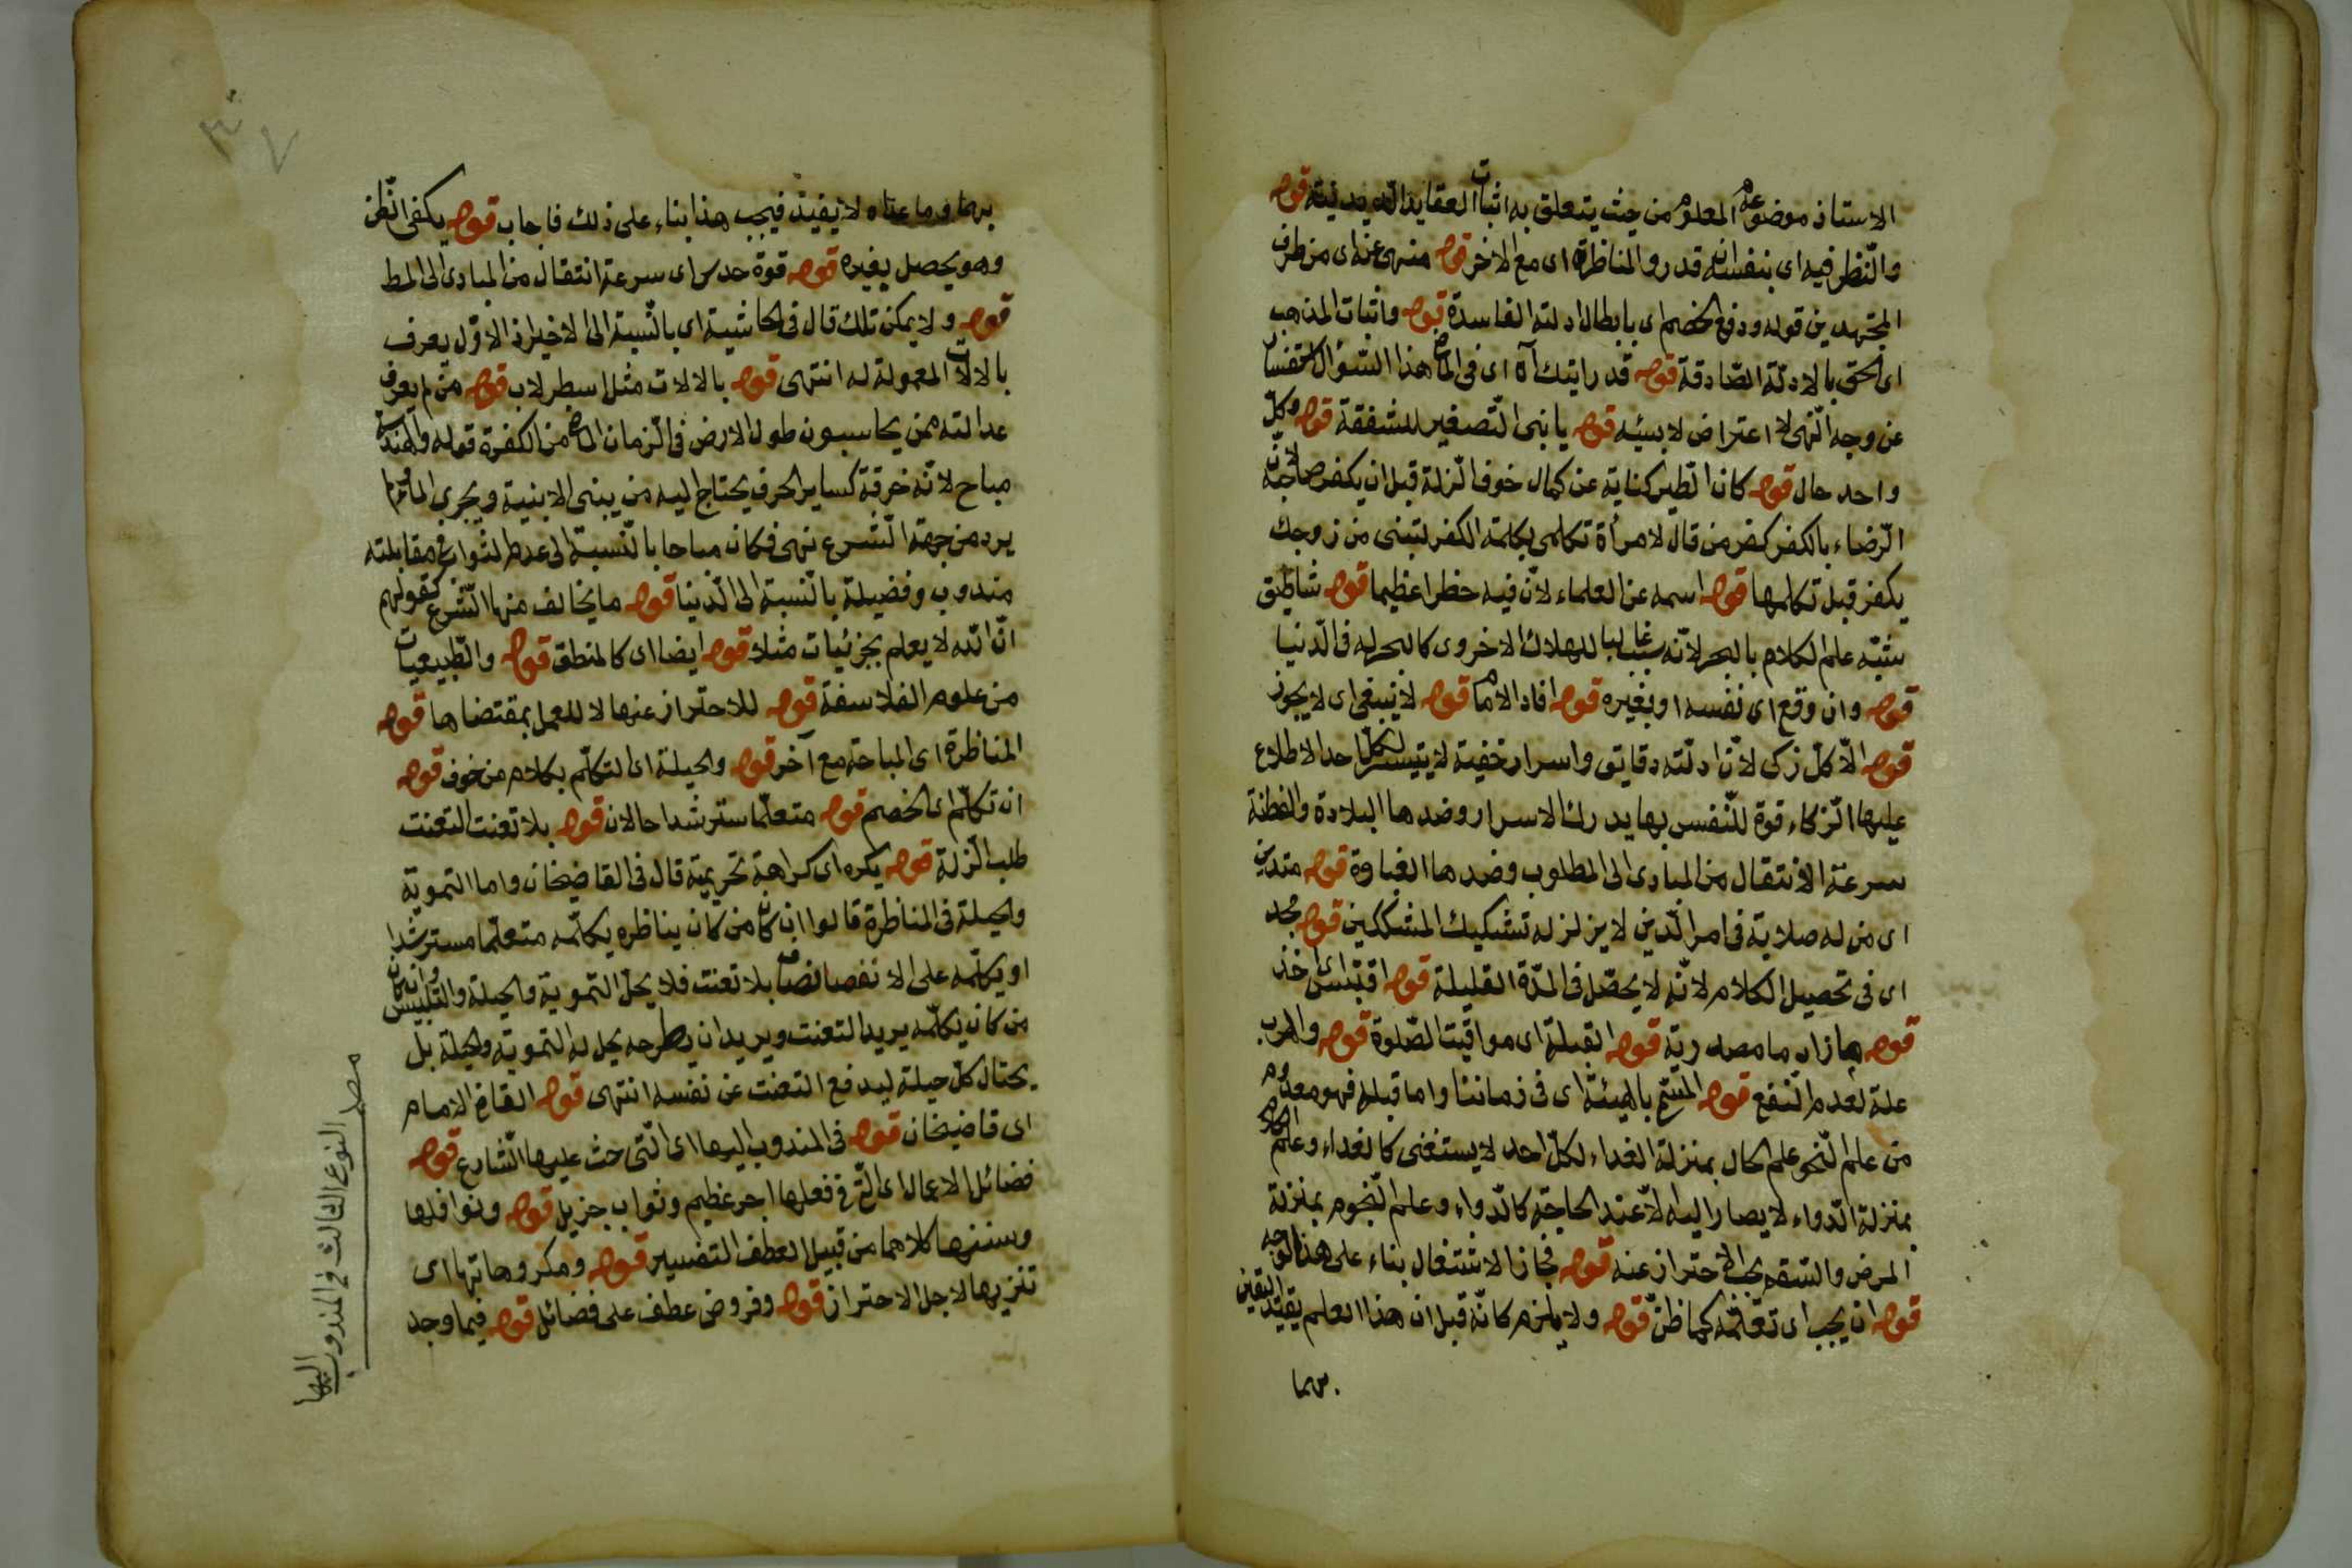 الاستاذ موضوعه المعلوم من حيث يتعلق به اثبات العقايد الدينية قوله
والنظر فيه اى بنفسانه قدر والمناظرة اى مع الاخر قوله منهى عنه اى من طرف
المجتهدين قوله ودفع الخصم اى بابطال ادلته الفاسدة قوله واثبات المذهب
اى الحق بالادلة الصادقة قوله قد رايتك آه اى فى الماض هذا السؤال استفسار
عن وجه النهى لا اعتراض لابيه قوله يا بنى التصغير للشفقة قوله وكل
واحد حال قوله كان الطير كناية عن كمال خوف الزلة قبل ان يكفر صاحبه لان
الرضاء بالكفر كفر من قال لامرأة تكلمى بكلمة الكفر لتبنى من زوجك
يكفر قبل تكلمها قوله اسمه عن العلماء لان فيه خطرا عظيما قوله شاطئ
شبه علم الكلام بالبحر لانه سبب غالبا للهلاك الاخروى كالبحر له فى الدنيا
قوله وان وقع اى نفسه او بغيره قوله افاد الامام قوله لا ينبغى اى لا يجوز
قوله الا كل زكى لان ادلته دقايق واسرار خفية لا يتيسر لكل احد الاطلاع
عليها الزكاء قوة للنفس بها يدرك الاسرار وضدها البلادة والفطنة
سرعة الانتقال من المبادى الى المطلوب وضدها الغباوة قوله متدين
اى من له صلابة فى امر الدين لا يزلزله تشكيك المشككين قوله مجد
اى فى تحصيل الكلام لانه لا يحصل فى المدة القليلة قوله اقتباس اى اخذ
قوله ما مصدرية قوله القبلة اى مواقيت الصلوة قوله والهرب
علة لعدم النفع قوله بالهيئة اى فى زماننا واما قبله فهو معدوم
من علم النحو علم الحال بمنزلة الغداء لكل احد لا يستغنى كالغداء وعلم الكلام
بمنزلة الدواء لا يصار اليه الا عند الحاجة كالدواء وعلم النجوم بمنزلة
المرض والسقم يجب الاحتراز عنه قوله فجاز الاشتغال بناء على هذا الوجه
قوله ان يجب اى تعلمه كما ظن قوله ولا يلزم كانه قيل ان هذا العلم يفيد اليقين
بهما
بهما وما عداه لا يفيد فيجب هذا بناء على ذلك فاجاب قوله يكفى الظن
وهو يحصل بغيره قوله قوة حدس اى سرعة انتقال من المبادى الى المط
قوله ولا يمكن تلك قال فى الحاشية اى بالنسبة الى الاخير اذ الاول يعرف
بالالات المعمولة له انتهى قوله بالالات مثل اسطرلاب قوله من لم يعرف
عدالته ممن يحاسبون طول الارض فى الزمان الماض من الكفرة قوله والهندسة
مباح لانه خرقة كساير الحرف يحتاج اليه من يبنى الابنية ويجرى الماء ولم
يرد من جهة الشرع نهى فكان مباحا بالنسبة الى عدم الثواب فى مقابلته
مندوب وفضيلة بالنسبة الى الدنيا قوله ما يخالف منها الشرع كقولهم
ان الله لا يعلم بجزئيات مثلا قوله ايضا اى كالمنطق قوله والطبيعيات
من علوم الفلاسفة قوله للاحتراز عنها لا للعمل بمقتضاها قوله
المناظرة اى المباحثة مع آخر قوله والحيلة اى التكلم بكلام مزخرف قوله
ان تكلم اى الخصم قوله متعلما مسترشدا حالان قوله بلا تعنت التعنت
طلب الزلة قوله يكره اى كراهة تحريمية قال فى القاضيخان واما التموية
والحيلة فى المناظرة قالوا ان كان من كان يناظره يكلمه متعلما مسترشدا
او يكلمه على الانصاف بلا تعنت فلا يحل التموية والحيلة والتلبيس وان كان
من كان يكلمه يريد التعنت ويريد ان يطرحه يحل له التموية والحيلة بل
يحتال كل حيلة ليدفع التعنت عن نفسه انتهى قوله القاض الامام
اى قاضيخان قوله فى المندوب اليها اى التى حث عليها الشارع قوله
فضائل الاعمال اى التى فى فعلها اجر عظيم وثواب جزيل قوله ونوافلها
وسننها كلاهما من قبيل العطف التفسير قوله ومكروهاتها اى
تنزيها لاجل الاحتراز قوله وفروض عطف على فضائل قوله فيما وجد
النوع الثالث فى المندوب اليها